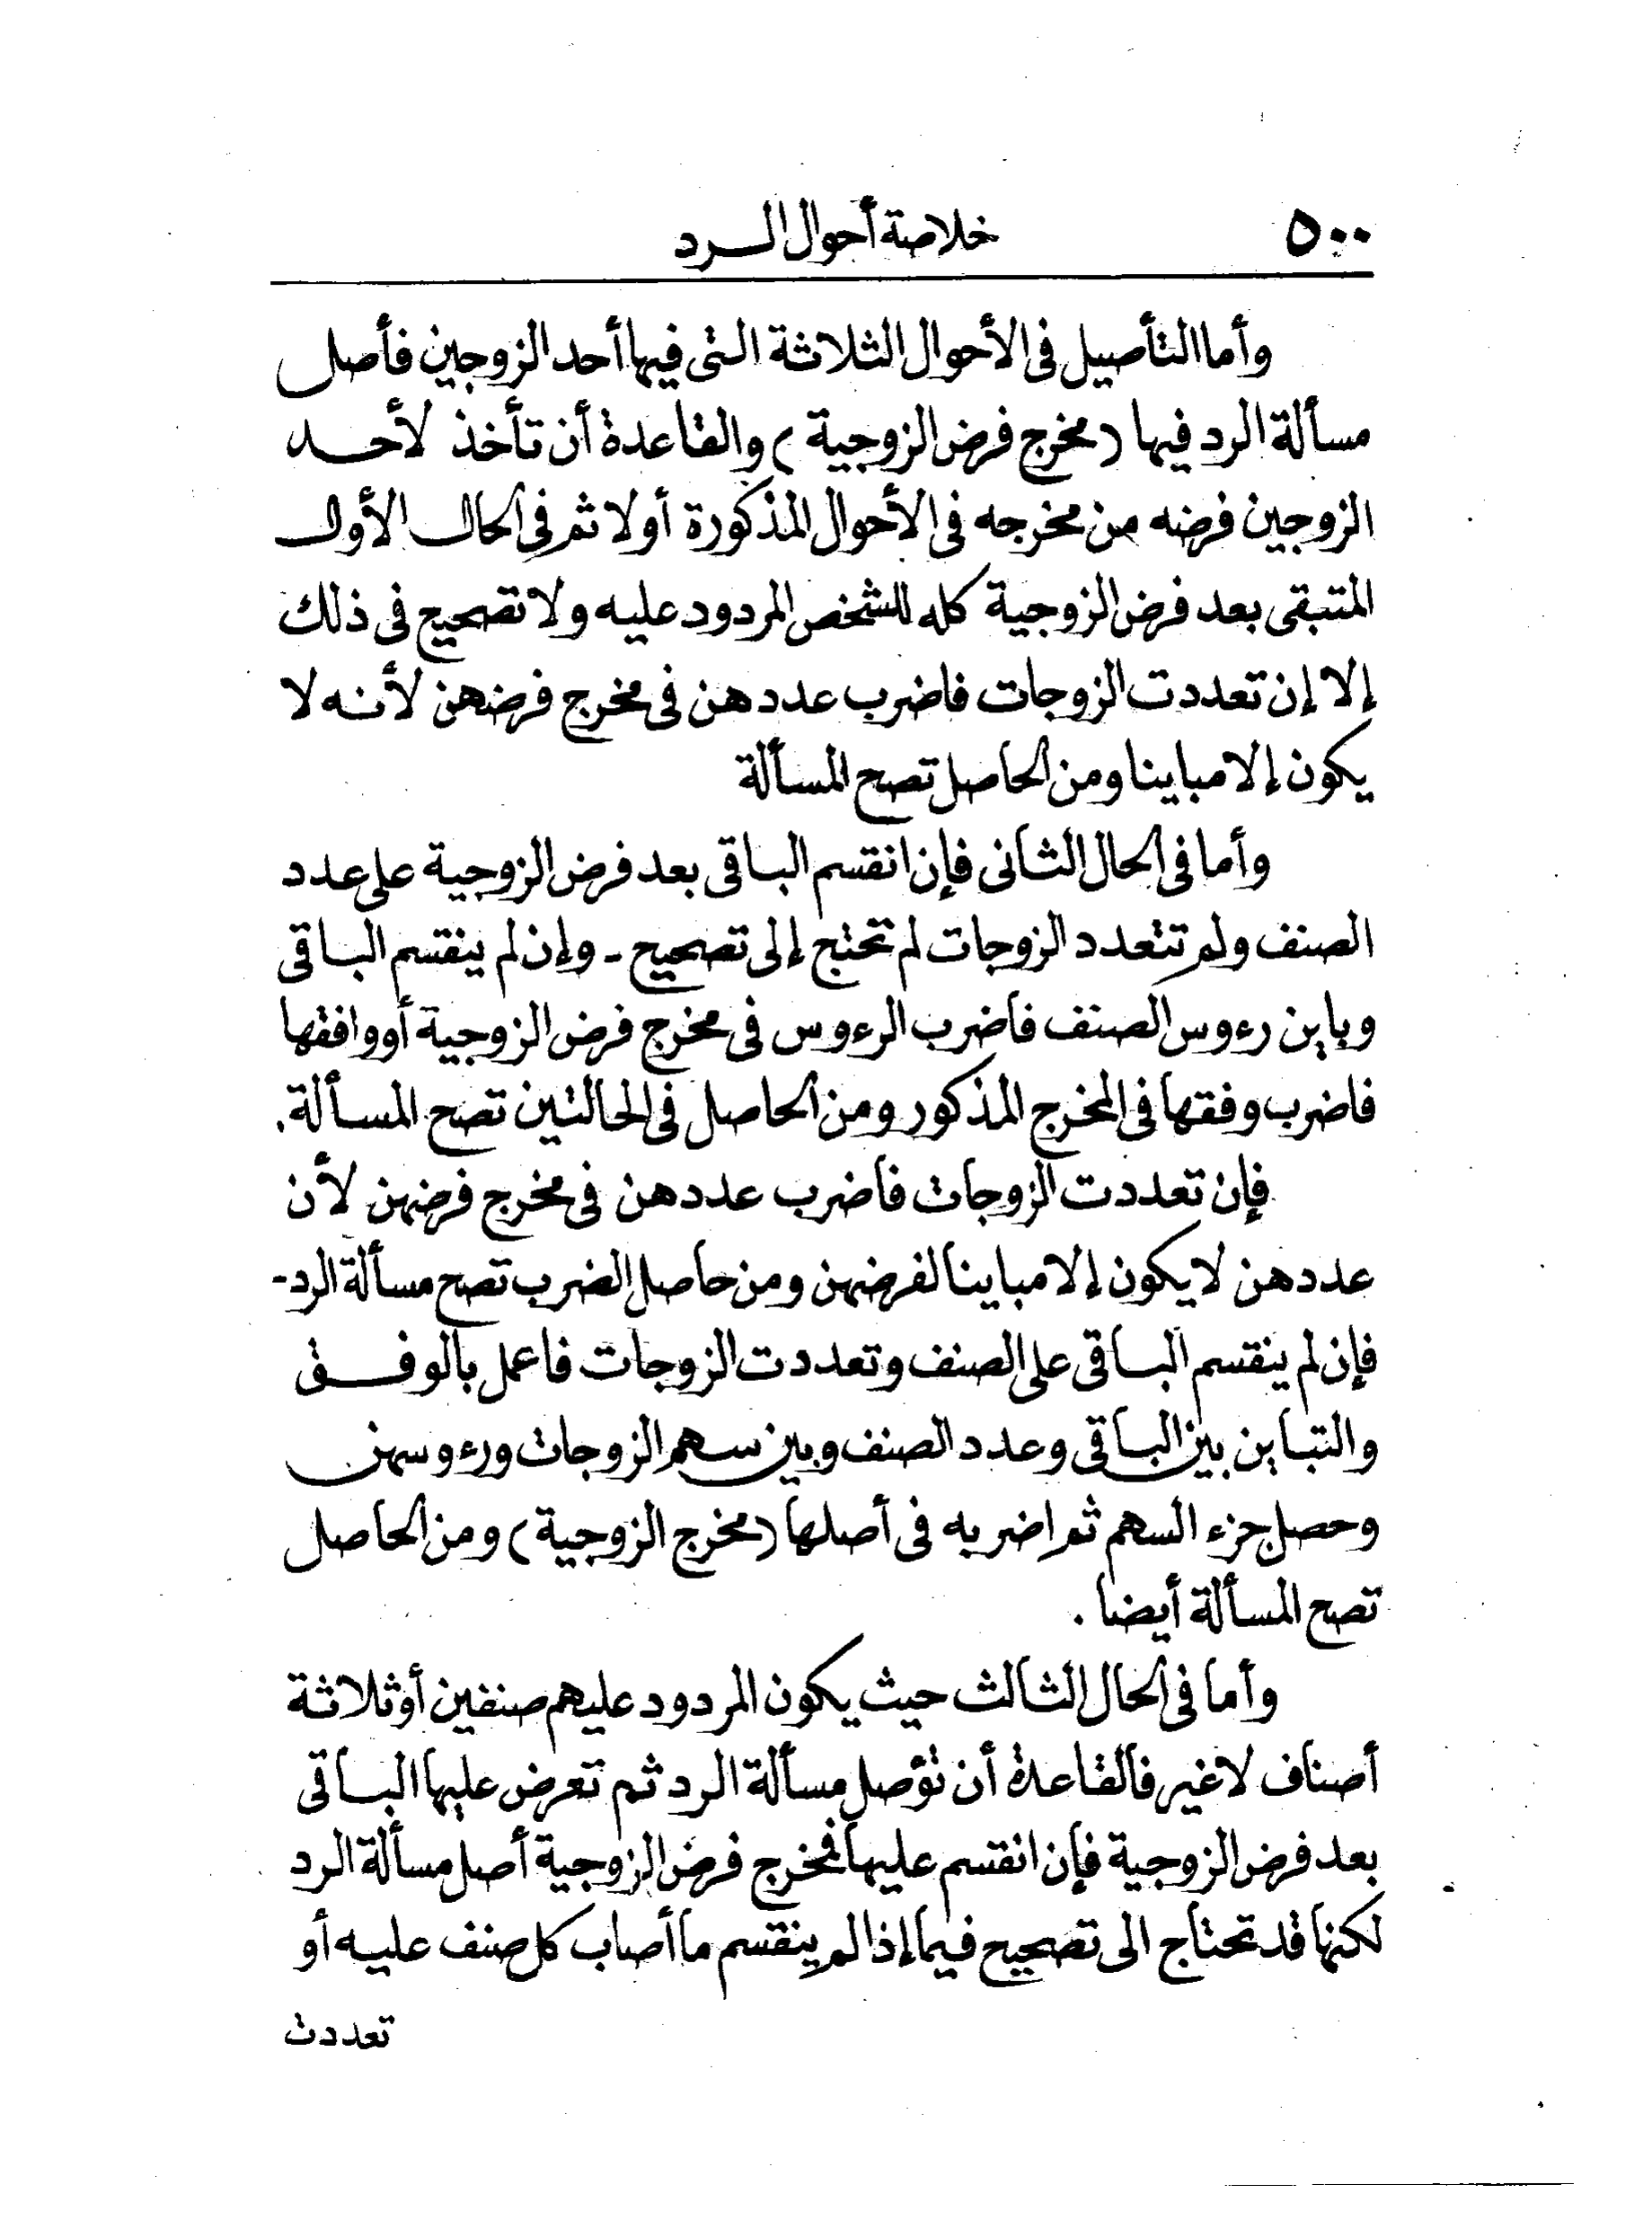 ٥٠٠
خلاصة أحوال الرد
وأما التأصيل فى الأحوال الثلاثة التى فيها أحد الزوجين فأصل
مسألة الرد فيها (مخرج فرض الزوجية) والقاعدة أن تأخذ لأحد
الزوجين فرضه من مخرجه فى الأحوال المذكورة أولا ثم فى الحال الأول
المتبقى بعد فرض الزوجية كله للشخص المردود عليه ولا تصحيح فى ذلك
إلا إن تعددت الزوجات فاضرب عددهن فى مخرج فرضهن لأنه لا
يكون إلا مباينا ومن الحاصل تصح المسألة
وأما فى الحال الثانى فإن انقسم الباقى بعد فرض الزوجية على عدد
الصنف ولم تتعدد الزوجات لم تحتج إلى تصحيح - وإن لم ينقسم الباقى
وباين رءوس الصنف فاضرب الرءوس فى مخرج فرض الزوجية أو وافقها
فاضرب وفقها فى المخرج المذكور ومن الحاصل فى الحالتين تصح المسألة.
فإن تعددت الزوجات فاضرب عددهن فى مخرج فرضهن لأن
عددهن لا يكون إلا مباينا لفرضهن ومن حاصل الضرب تصح مسألة الرد -
فإن لم ينقسم الباقى على الصنف وتعددت الزوجات فاعمل بالوفق
والتباين بين الباقى وعدد الصنف وبين سهم الزوجات ورءوسهن
وحصل جزء السهم ثم اضربه فى أصلها (مخرج الزوجية) ومن الحاصل
تصح المسألة أيضا .
وأما فى الحال الثالث حيث يكون المردود عليهم صنفين أو ثلاثة
أصناف لا غير فالقاعدة أن تؤصل مسألة الرد ثم تعرض عليها الباقى
بعد فرض الزوجية فإن انقسم عليها فمخرج فرض الزوجية أصل مسألة الرد
لكنها قد تحتاج الى تصحيح فيما إذا لم ينقسم ما أصاب كل صنف عليه أو
تعددت